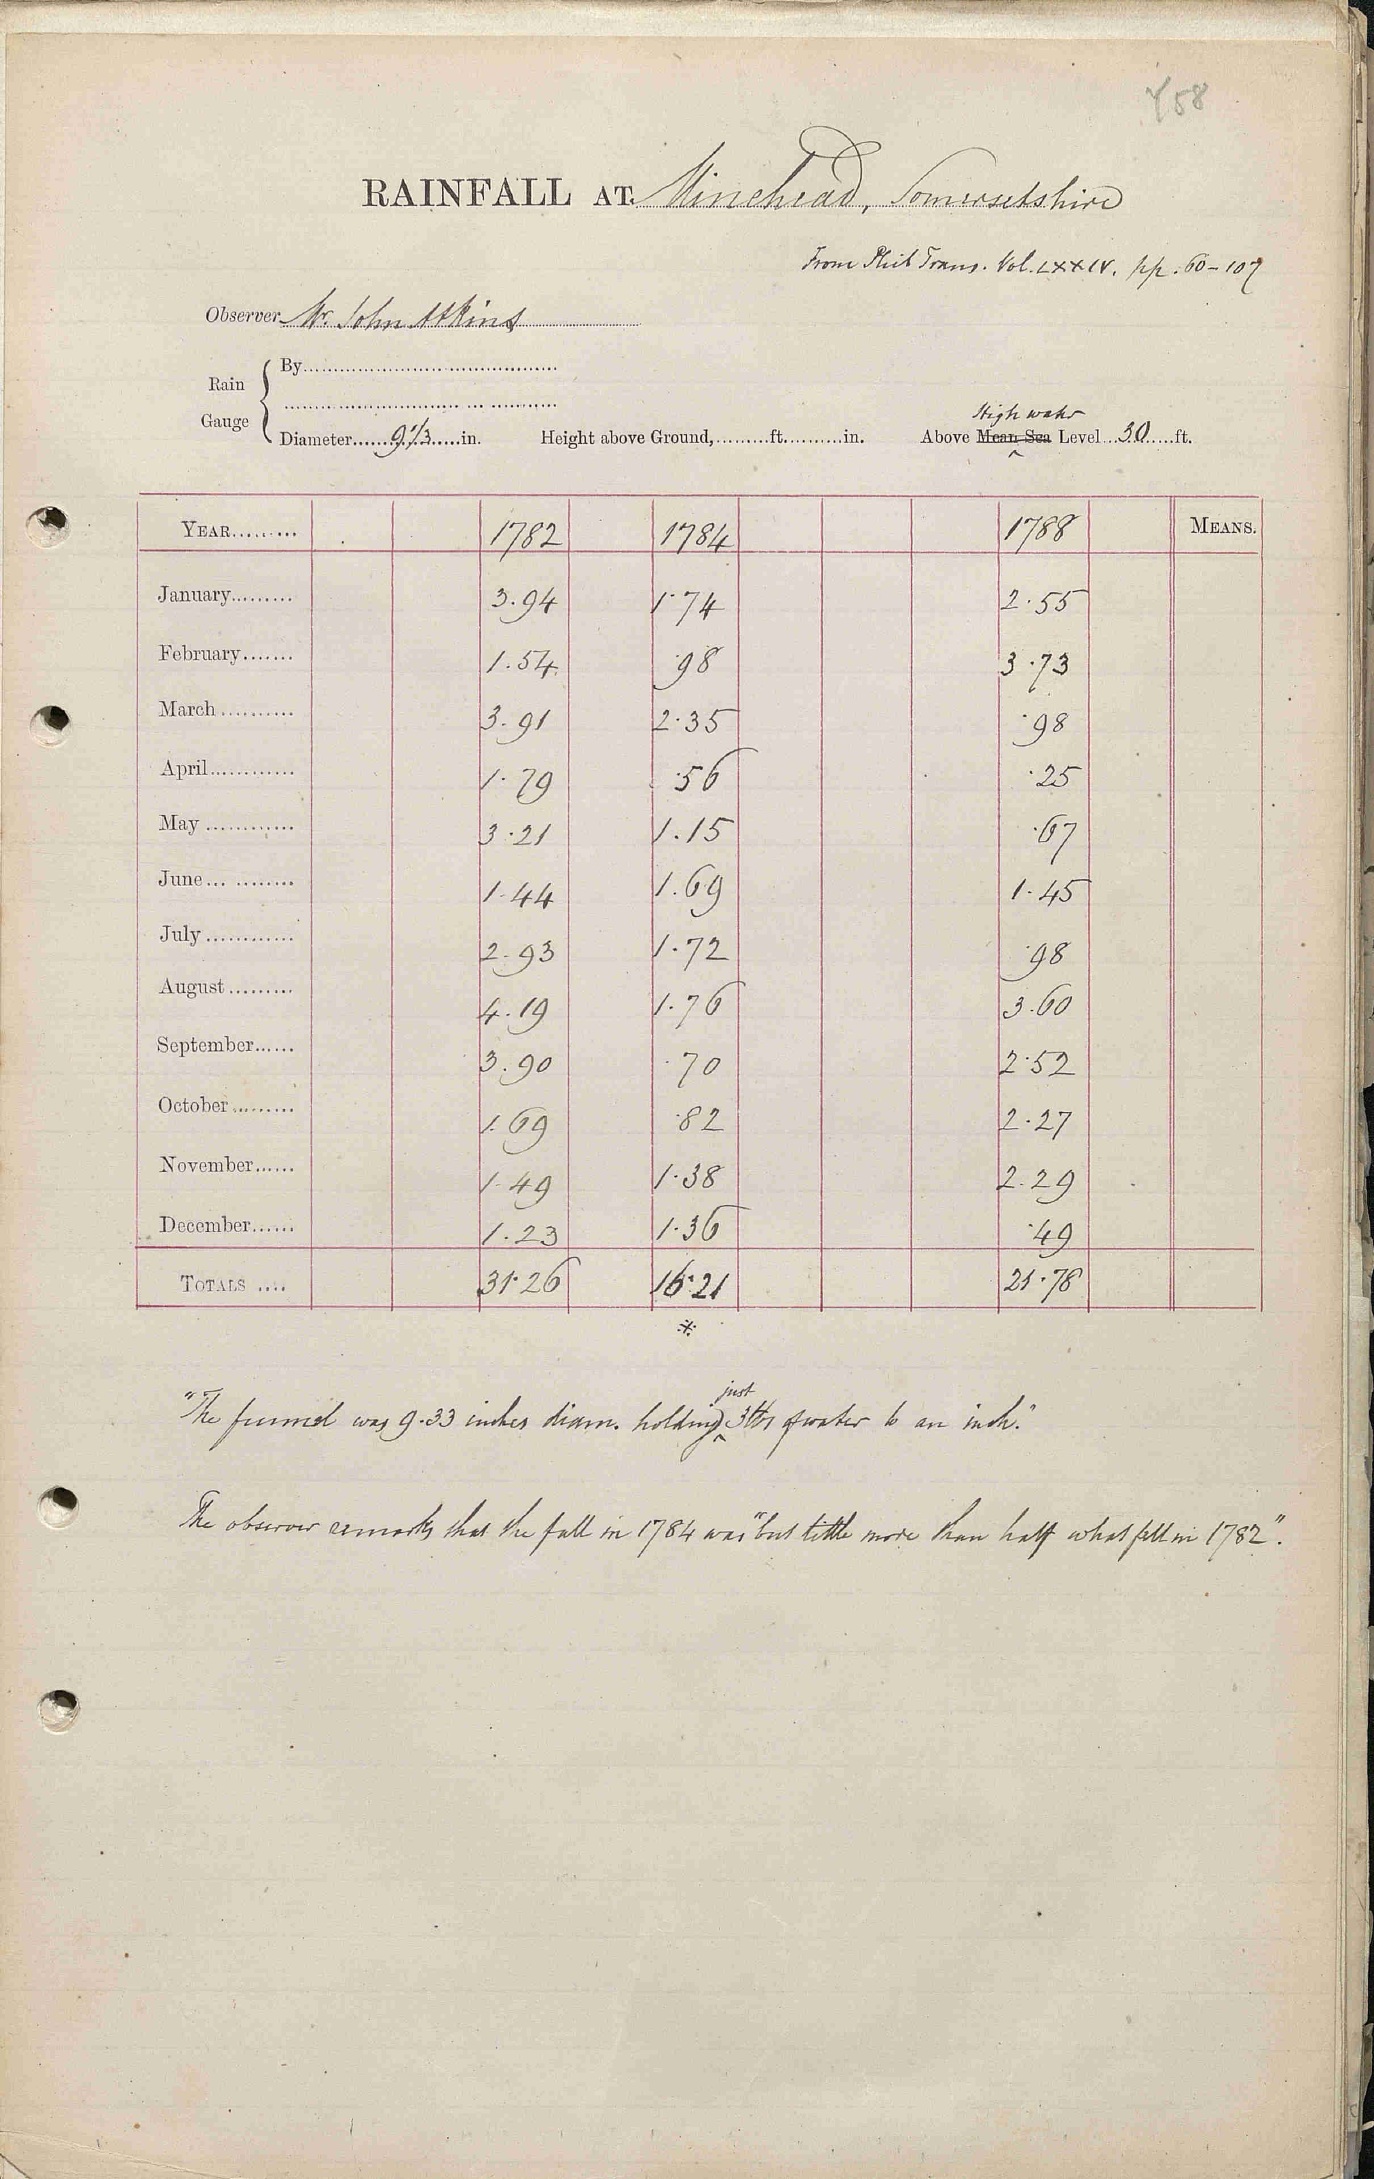 Y58
RAINFALL AT Minehead, Somersetshire
From Phil Trans. Vol. LXXIV. pp. 60-107
Observer Mr. John Atkins
Rain Gauge { By
Diameter 9 1/3 in. Height above Ground, ft. in. Above Mean Sea High water Level 30 ft.
YEAR 1782 1784 1788 MEANS.
January 3.94 1.74 2.55
February 1.54 .98 3.73
March 3.91 2.35 .98
April 1.79 .56 .25
May 3.21 1.15 .67
June 1.44 1.69 1.45
July 2.93 1.72 .98
August 4.19 1.76 3.60
September 3.90 .70 2.52
October 1.69 .82 2.27
November 1.49 1.38 2.29
December 1.23 1.36 .49
TOTALS 31.26 16.21 21.78
*
"The funnel was 9.33 inches diam. holding just 3lbs of water to an inch."
The observer remarks that the fall in 1784 was "but little more than half what fell in 1782".